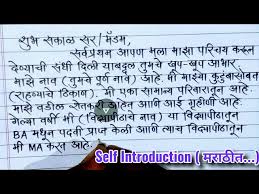 शुभ सकाळ सर/मॅडम,
सर्वप्रथम आपण मला माझा परिचय करून
देण्याची संधी दिली याबद्दल तुमचे खूप-खूप आभार.
माझे नाव (तुमचे पूर्ण नाव) आहे. मी माझ्या कुटुंबासोबत
(राहण्याचे ठिकाण). मी एका सामान्य परिवारातून आहे.
माझे वडील शेतकरी आहेत आणि आई गृहीणी आहे.
गेल्या वर्षी मी (विद्यापीठाचे नाव) या विद्यापीठातून
BA मधून पदवी प्राप्त केली आणि त्याच विद्यापीठातून
मी MA करत आहे.
Self Introduction (मराठीत...)